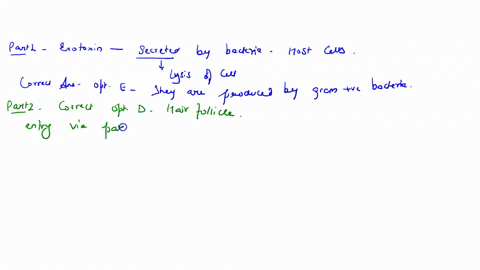 Part1 - Exotoxin — Secreted by bacteria. Host Cells.
↓ Lysis of Cell
Correct Ans. opt. E - They are produced by gram +ve bacteria.
Part2. Correct opt D. Hair follicle.
entry via pa